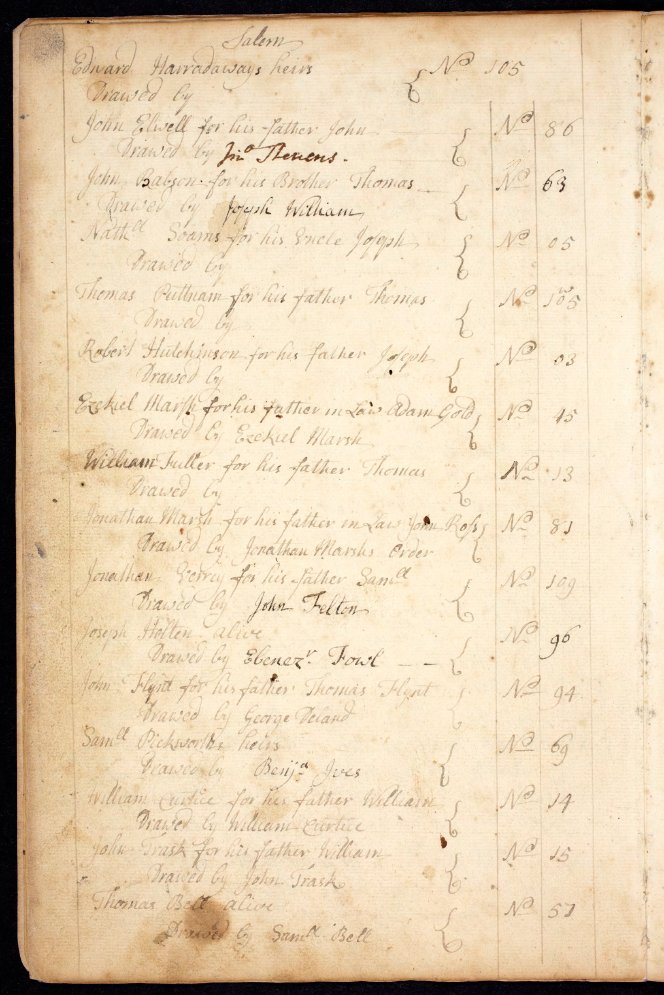 Salem
Edward Harradaways heirs No 105
Drawed by
John Elwell for his father John No 86
Drawed by Jno Stevens.
John Babson for his Brother Thomas No 63
Drawed by Joseph William
Nathll Soams for his Uncle Joseph No 05
Drawed by
Thomas Puttnam for his father Thomas No 105
Drawed by
Robert Hutchinson for his father Joseph No 03
Drawed by
Ezekiel Marsh for his father in Law Adam Gold No 45
Drawed by Ezekiel Marsh
William Fuller for his father Thomas No 13
Drawed by
Jonathan Marsh for his father in Law John Ross No 81
Drawed by Jonathan Marshs Order
Jonathan Verrey for his father Samll No 109
Drawed by John Felton
Joseph Holten alive No 96
Drawed by Ebenezr. Fowl
John Flynt for his father Thomas Flynt No 94
Drawed by George Deland
Samll Pickworths heirs No 69
Drawed by Benja Ives
William Curtice for his father William No 14
Drawed by William Curtice
John Trask for his father William No 15
Drawed by John Trask
Thomas Bell alive No 51
Drawed by Samll Bell